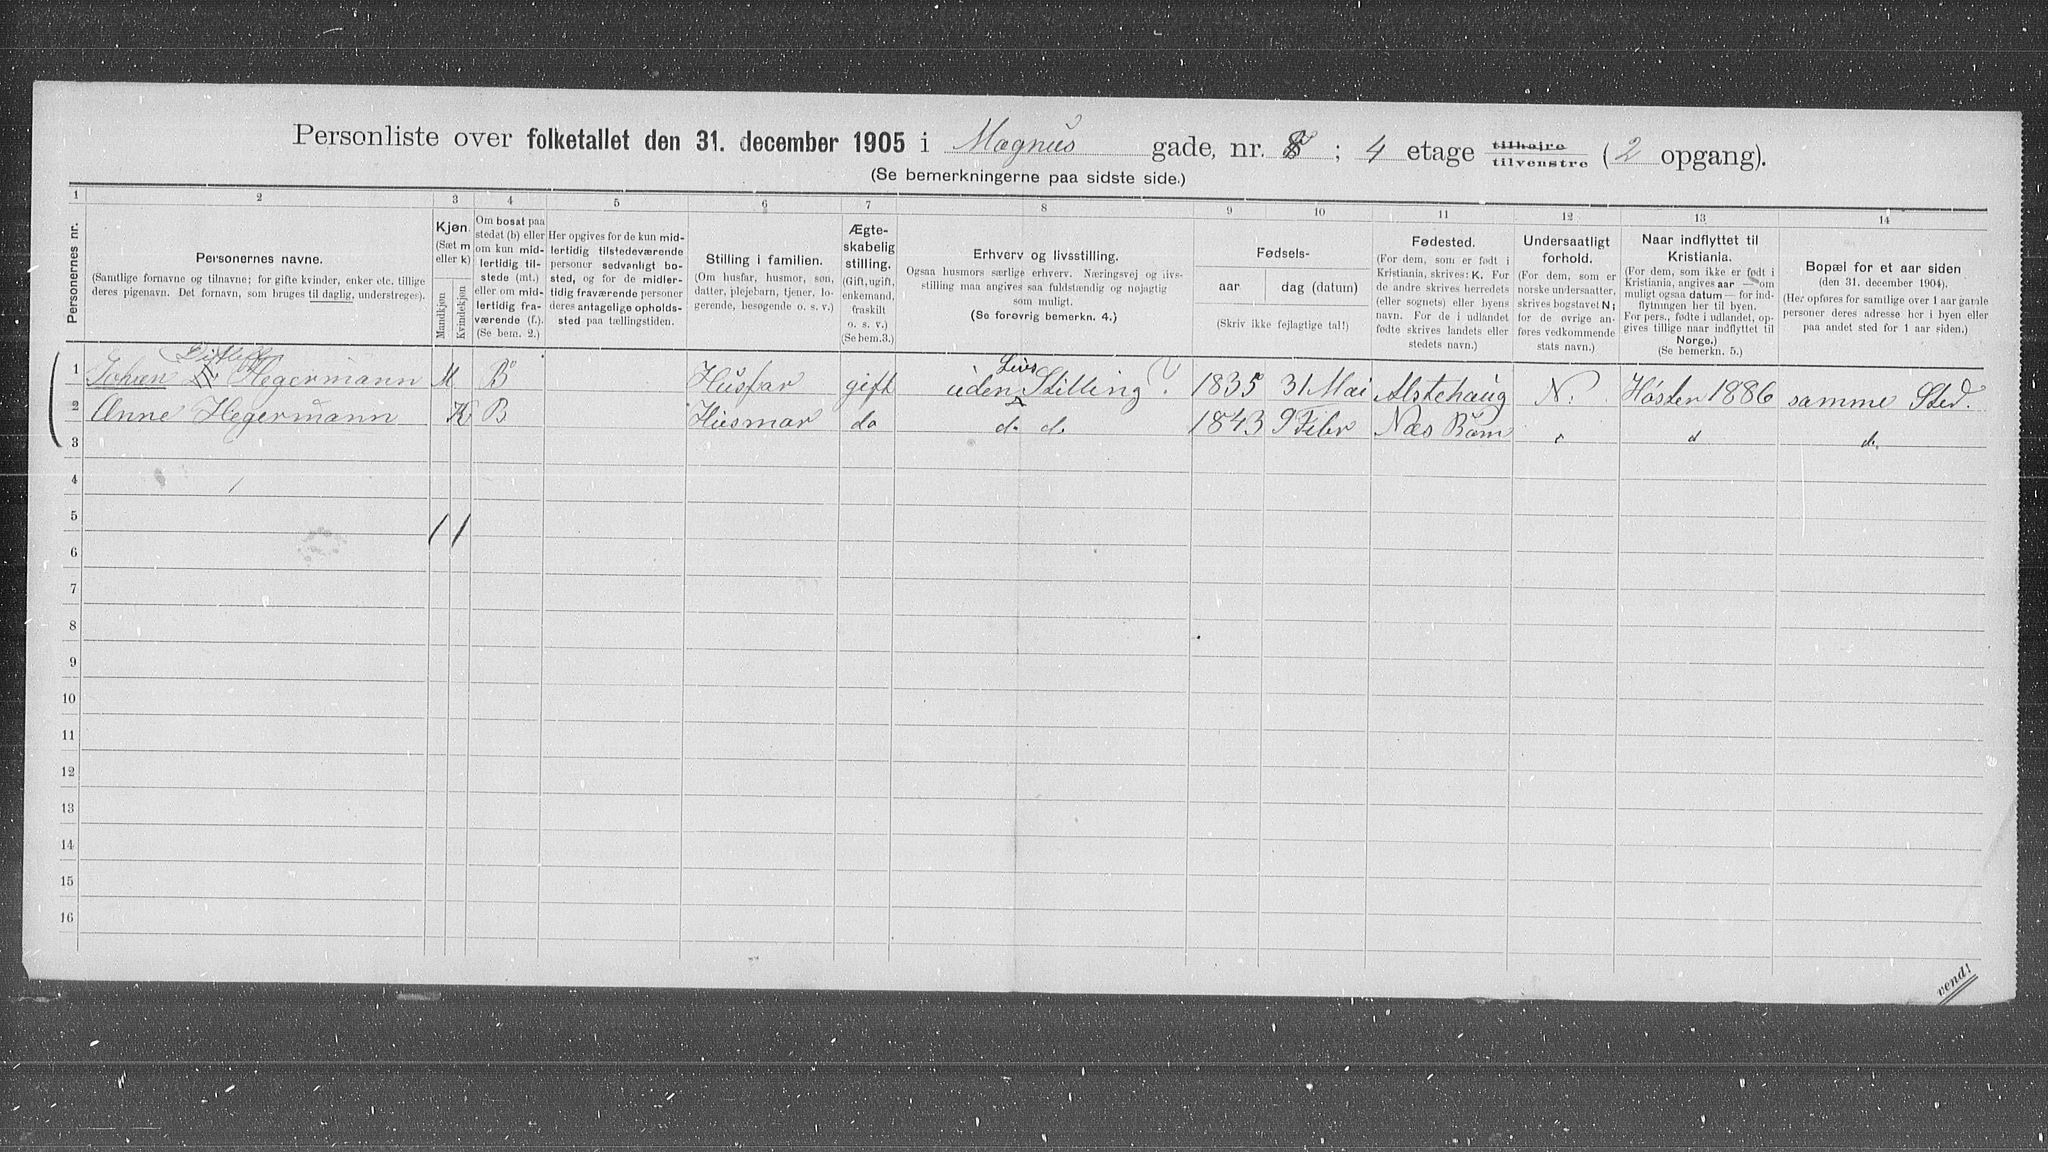 Personliste over folketallet den 31. december 1905 i Magnus gade, nr. ; 4 etage tilhøire tilvenstre (2 opgang).
(Se bemerkningerne paa sidste side.)
1 2 3 4 5 6 7 8 9 10 11 12 13 14
Personernes nr.
Personernes navne.
(Samtlige fornavne og tilnavne; for gifte kvinder, enker etc. tillige
deres pigenavn. Det fornavn, som bruges til daglig, understreges).
Kjøn.
(Sæt m
eller k)
Mandkjøn
Kvindekjøn
Om bosat paa
stedet (b) eller
om kun mid-
lertidig til-
stede (mt.)
eller om mid-
lertidig fra-
værende (f.).
(Se bem. 2.)
Her opgives for de kun mid-
lertidig tilstedeværende
personer sedvanligt bo-
sted, og for de midler-
tidig fraværende personer
deres antagelige opholds-
sted paa tællingstiden.
Stilling i familien.
(Om husfar, husmor, søn,
datter, plejebarn, tjener, lo-
gerende, besøgende o. s. v.)
Ægte-
skabelig
stilling.
(Gift, ugift,
enkemand,
fraskilt
o. s. v.)
(Se bem.3.)
Erhverv og livsstilling.
Ogsaa husmors særlige erhverv. Næringsvej og livs-
stilling maa angives saa fuldstændig og nøjagtig
som muligt.
(Se forøvrig bemerkn. 4.)
Fødsels-
aar dag (datum)
(Skriv ikke fejlagtige tal!)
Fødested.
(For dem, som er født i
Kristiania, skrives: K. For
de andre skrives herredets
(eller sognets) eller byens
navn. For de i udlandet
fødte skrives landets eller
stedets navn.)
Undersaatligt
forhold.
(For dem, som er
norske undersaatter,
skrives bogstavet N;
for de øvrige an-
føres vedkommende
stats navn.)
Naar indflyttet til
Kristiania.
(For dem, som ikke er født i
Kristiania, angives aar — om
muligt ogsaa datum — for ind-
flytningen her til byen.
For pers., fødte i udlandet, op-
gives tillige naar indflyttet til
Norge.)
(Se bemerkn. 5.)
Bopæl for et aar siden
(den 31. december 1904).
(Her opføres for samtlige over 1 aar gamle
personer deres adresse her i byen eller
paa andet sted for 1 aar siden.)
Ditleff
Livs
1 Johan Hegermann M B Husfar gift uden Stilling. 1835 31 Mai Alstehaug N. Høsten 1886 samme Sted.
2 Anne Hegermann K B Husmor do do do 1843 9 Febr Næs Rom " d do
3
4
5
1 1
6
7
8
9
10
11
12
13
14
15
16
vend!